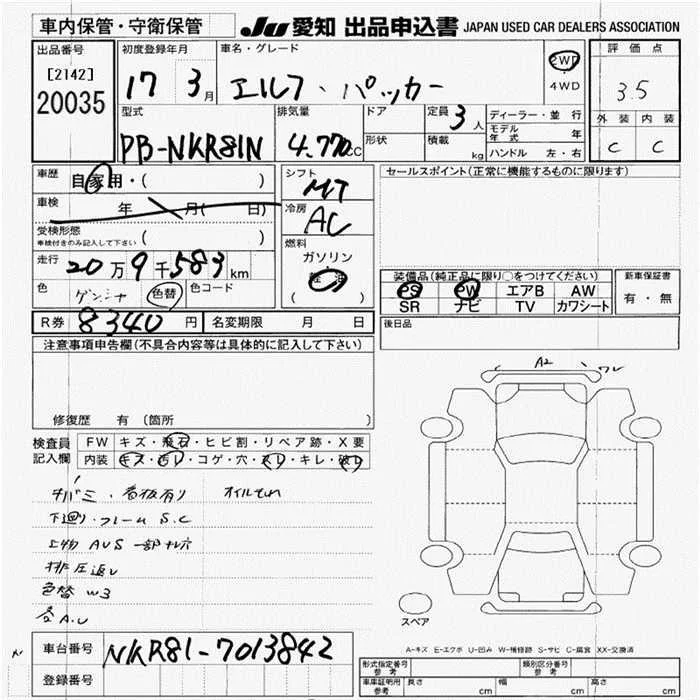 車内保管・守衛保管
JU 愛知 出品申込書 JAPAN USED CAR DEALERS ASSOCIATION
出品番号
[2142]
20035
初度登録年月
17 3月
車名・グレード
エルフ・パッカー
2WD
・
4WD
評価点
3.5
外装 内装
C C
型式
PB-NKR81N
排気量
4.770cc
ドア
形状
定員 3人
積載 kg
ディーラー・並行
モデル年式 年
ハンドル 左・右
車歴 自家用・( )
車検 年 月( 日)
受検形態
車検付きのみ記入して下さい ( )
走行 20万9千583km
色 色替 色コード
シフト
MT
冷房
AC
燃料
ガソリン
軽油
( )
セールスポイント(正常に機能するものに限ります)
装備品(純正品に限り○をつけてください)
PS PW エアB AW
SR ナビ TV カワシート
新車保証書
有・無
後日品
R券 8340円 名変期限 月 日
注意事項申告欄(不具合内容等は具体的に記入して下さい)
修復歴 有 (箇所 )
検査員
記入欄
FW キズ・飛石・ヒビ割・リペア跡・X要
内装 キズ・汚レ・コゲ・穴・スレ・キレ・破レ
サバミ・看板有り オイルもれ
下廻り・フレーム S.C
上物 AUS 一部サレ穴
排圧返し
色替 W3
全A.U
A2
スペア
A-キズ E-エクボ U-凹み W-補修跡 S-サビ C-腐食 XX-交換済
車台番号 NKR81-7013842
登録番号
形式指定番号 参考 類別区分番号 参考
車庫証明用 参考 長さ cm 幅 cm 高さ cm